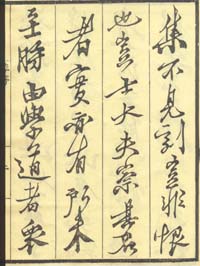 集不見豈非恨
也士大夫宗其名
者實亦有所未
至勝由學道者衆